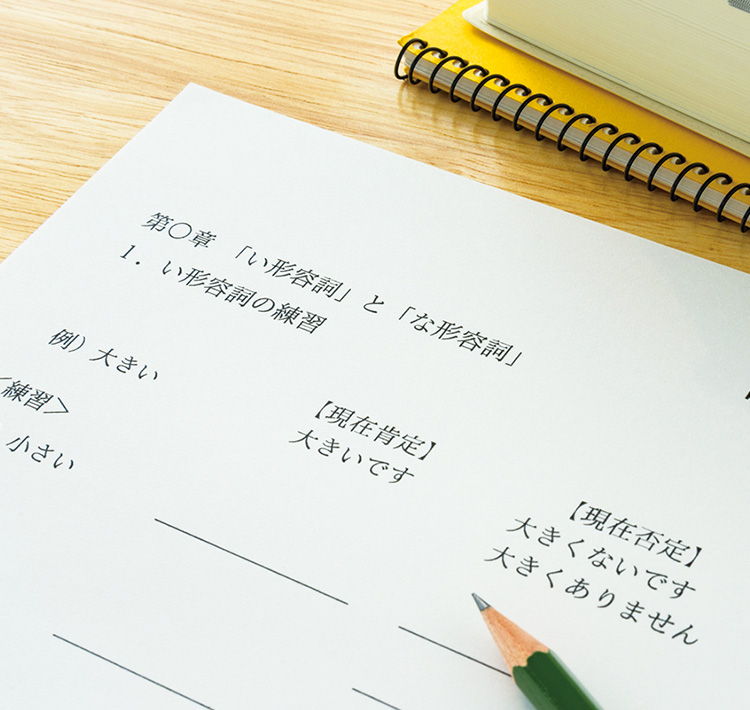 第〇章 「い形容詞」と「な形容詞」
1. い形容詞の練習
例）大きい
【現在肯定】
大きいです
【現在否定】
大きくないです
大きくありません
〈練習〉
小さい